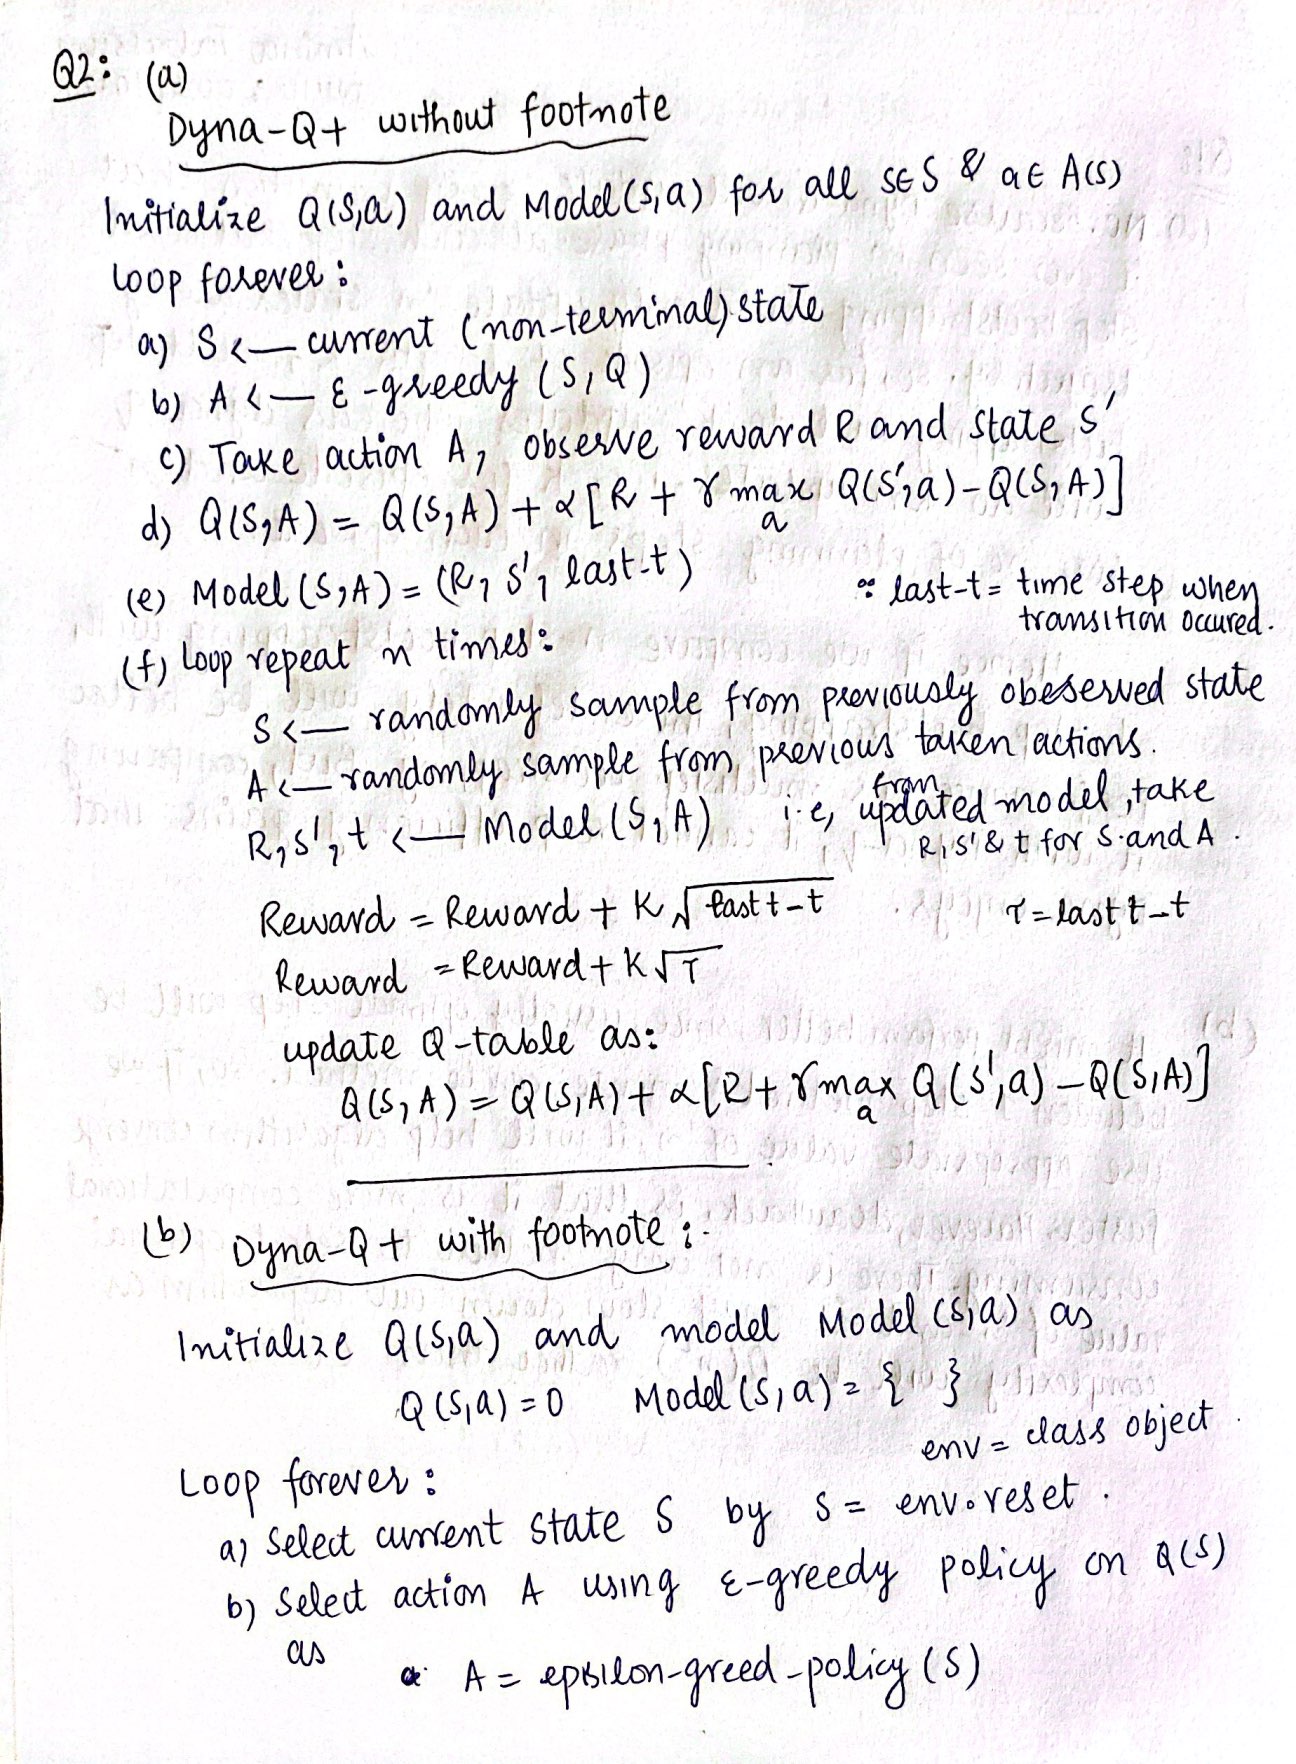 Q2: (a)
Dyna-Q+ without footnote
Initialize Q(S,a) and Model(s,a) for all s∈S & a∈A(s)
Loop forever:
a) S <— current (non-terminal) state
b) A <— ε-greedy (S, Q)
c) Take action A, observe reward R and state S'
d) Q(S,A) = Q(S,A) + α[R + γ max Q(S',a) - Q(S,A)]
a
(e) Model(S,A) = (R, S', last-t) last-t = time step when
transition occured.
(f) Loop repeat n times:
S <— randomly sample from previously obeserved state
A <— randomly sample from previous taken actions.
R, S', t <— Model(S,A) i.e, from updated model, take
R, S' & t for S and A.
Reward = Reward + K √last t - t τ = last t - t
Reward = Reward + K√τ
update Q-table as:
Q(S,A) = Q(S,A) + α[R + γ max Q(S',a) - Q(S,A)]
a
(b) Dyna-Q+ with footnote :-
Initialize Q(s,a) and model Model(s,a) as
Q(s,a) = 0 Model(s,a) = { }
env = class object.
Loop forever:
a) Select current state S by S = env.reset.
b) Select action A using ε-greedy policy on Q(S)
as
A = epsilon-greed-policy(S)